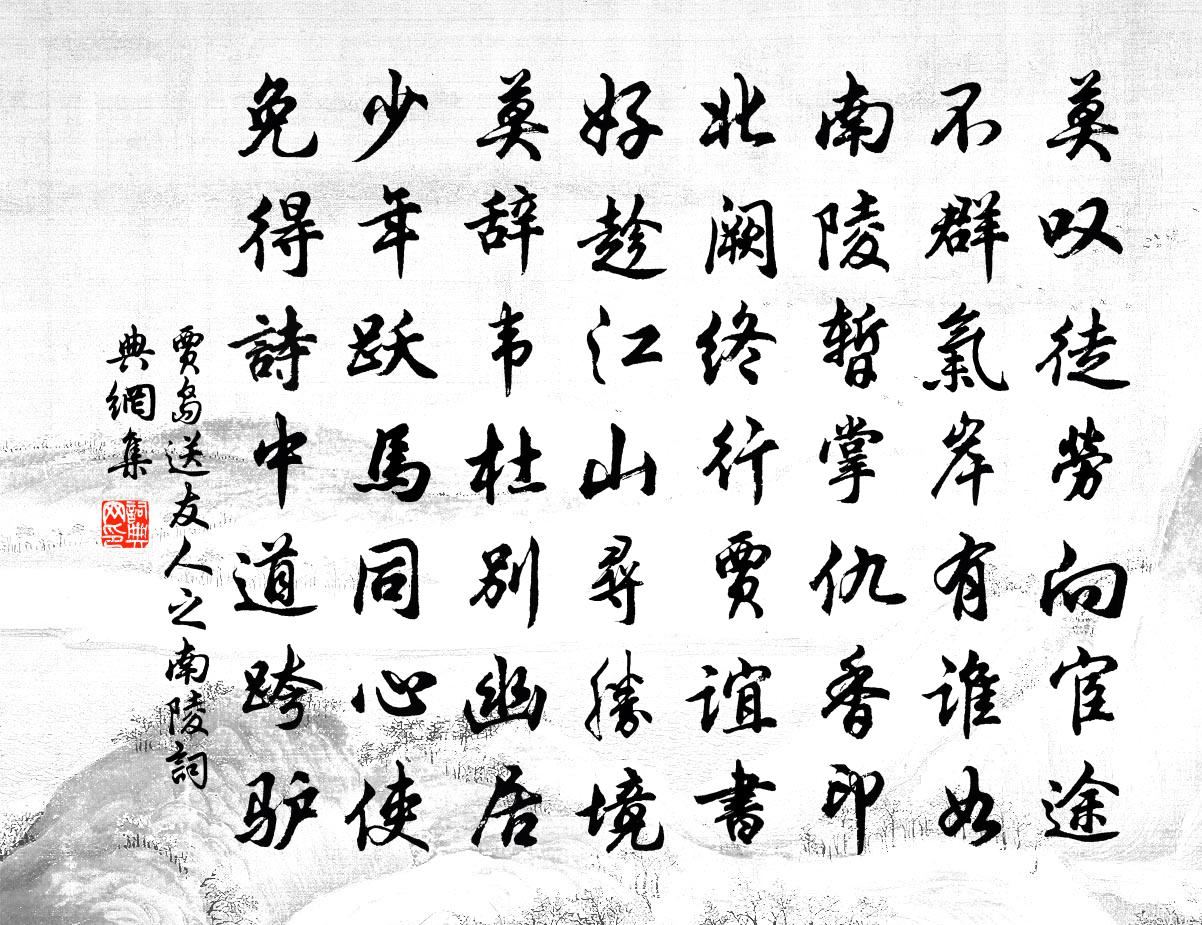 莫叹徒劳向宦途
不群氣岸有谁如
南陵暂掌仇香印
北阙终行贾谊書
好趁江山尋勝境
莫辞韦杜别幽居
少年跃馬同心使
免得詩中道跨驴
贾岛送友人之南陵詞
典網集
詞典
网印